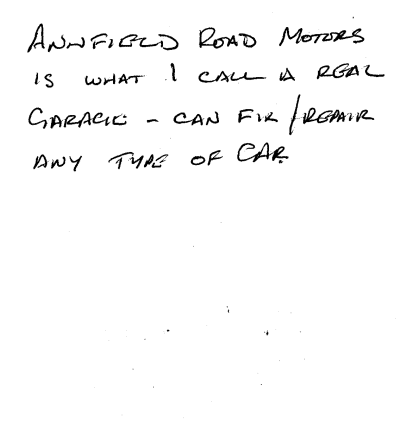 ANNFIELD ROAD MOTORS
IS WHAT I CALL A REAL
GARAGE - CAN FIX/REPAIR
ANY TYPE OF CAR.